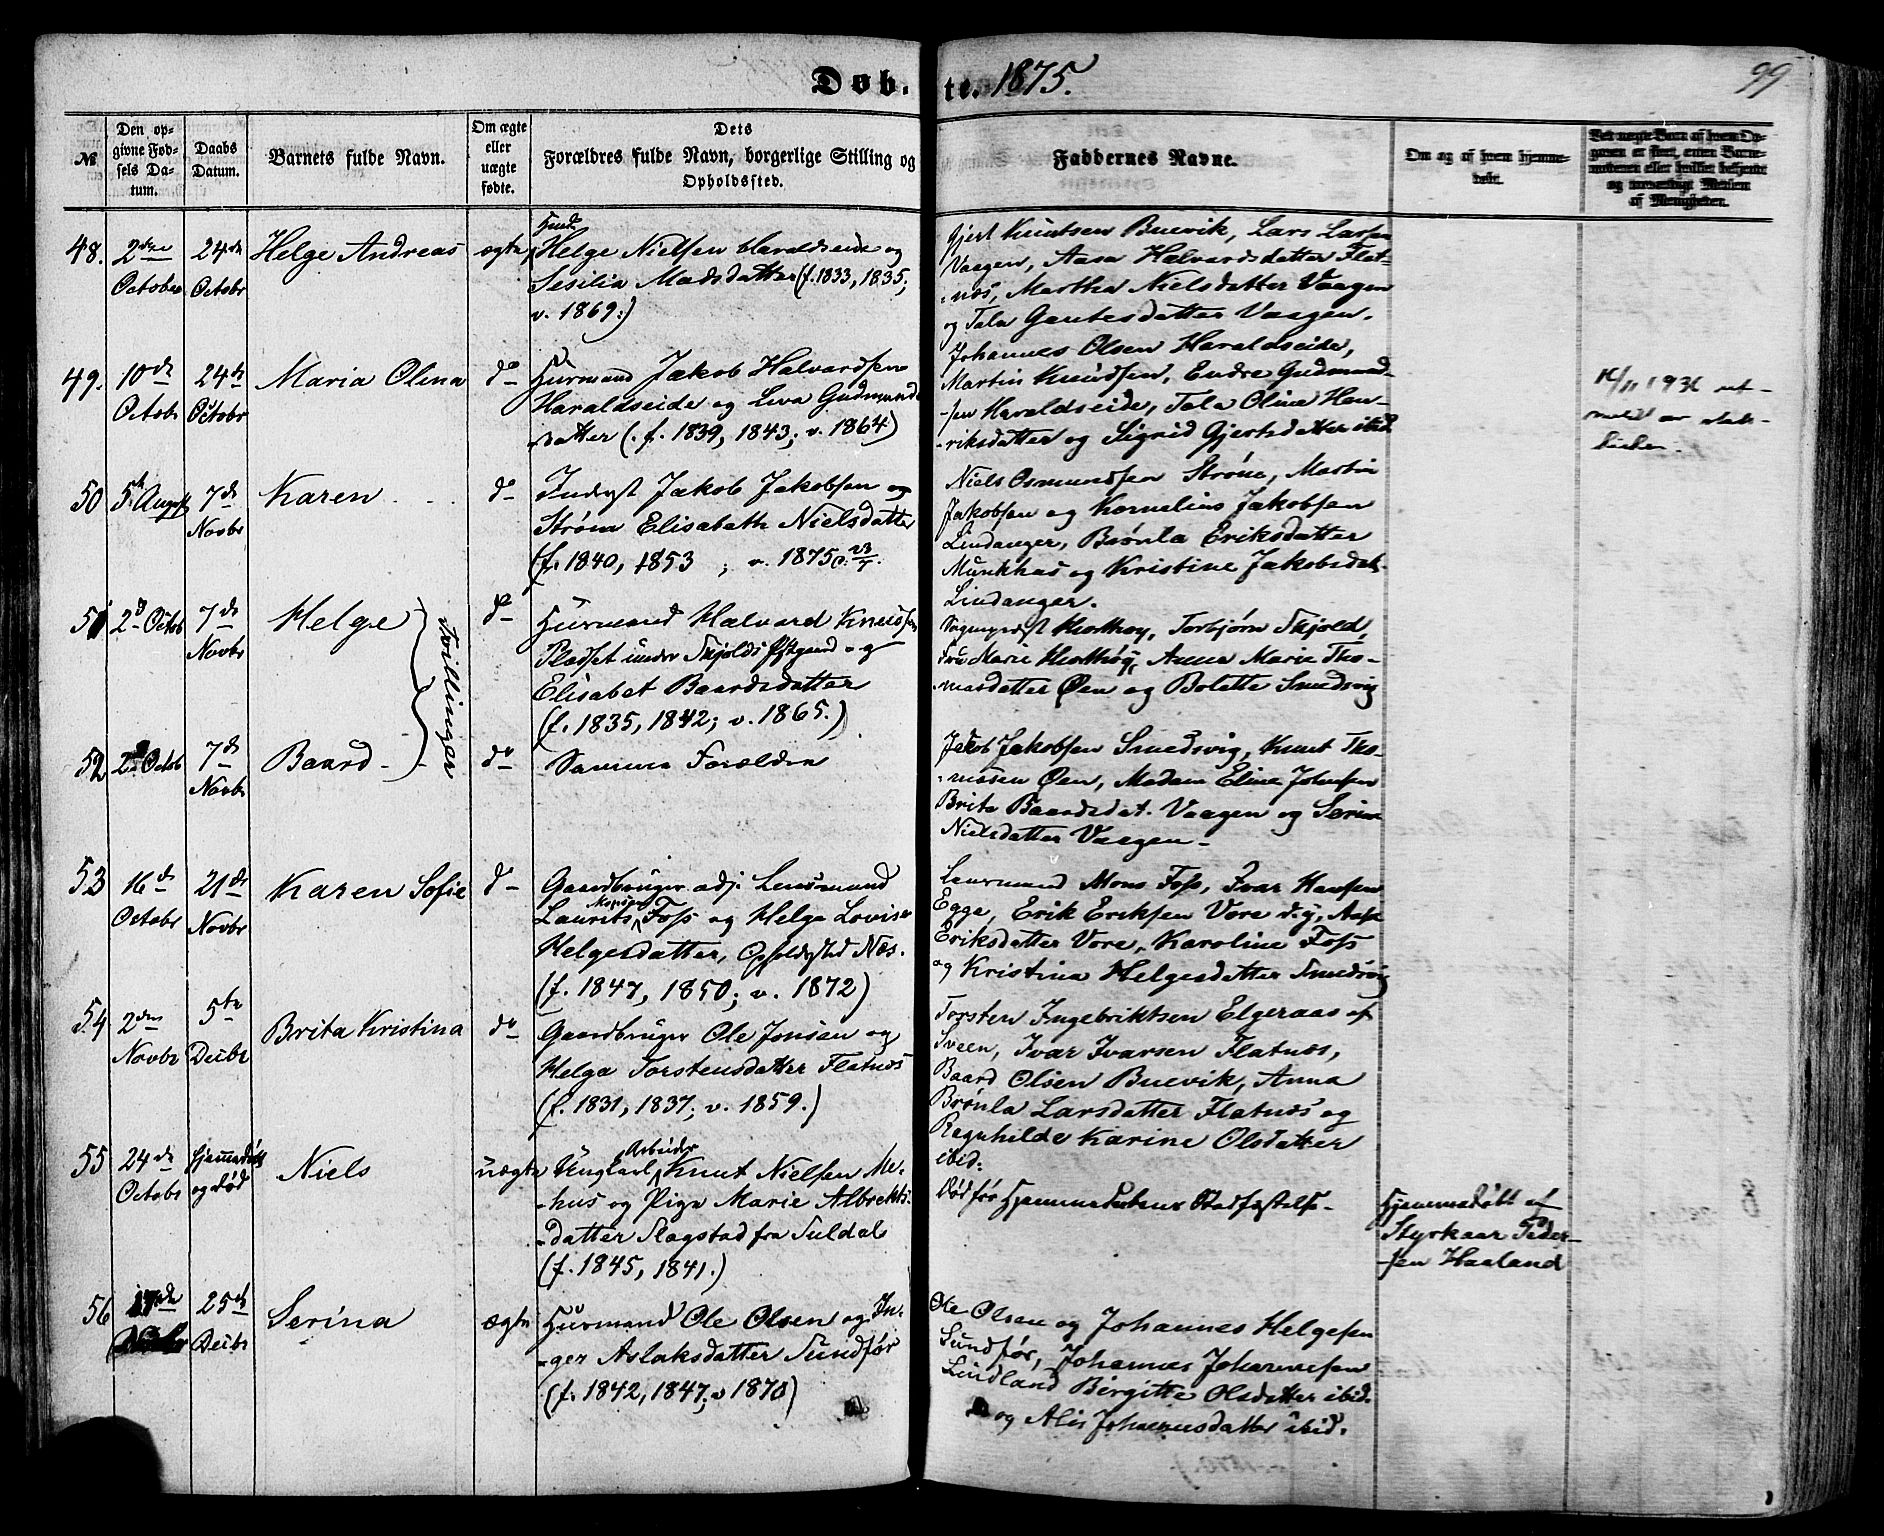 Døb- te. 1875. 99
№
Den op-
givne Fød-
sels Da-
tum.
Daabs
Datum.
Barnets fulde Navn.
Om ægte
eller
uægte
fødte.
Dets
Forældres fulde Navn, borgerlige Stilling og
Opholdssted.
Faddernes Navne.
Om og af hvem hjemme-
døbt.
48. 2den
October
24de
Octobr
Helge Andreas
ægte
Helge Nielsen Haraldseide og
Sesilia Madsdatter (f. 1833, 1835;
v. 1869.)
Gjert Knutsen Buevik, Lars Larsen
Vaagen, Aasa Halvardsdatter Flat-
-næs, Martha Nielsdatter Vaagen
og Tala Gautesdatter Vaagen.
49. 10de
Octobr
24de
Octobr
Maria Olina
do
Huusmand Jakob Halvardsen
Haraldseide og Eva Gudmunds
datter (. f. 1839, 1843; v. 1864)
Johannes Olsen Haraldseide,
Martin Knudsen, Endre Gudmund-
-sen Haraldseide, Tala Oline Hen-
-riksdatter og Sigrid Gjertsdatter ibid.
50 5te August
7de
Novbr
Karen
do
Inderst Jakob Jakobsen og
Strøm Elisabeth Nielsdatter
(f. 1840, 1853 ; v. 1875
Niels Osmundsen Strøm, Martin
Jakobsen og Kornelius Jakobsen
Lindanger, Brønla Eriksdatter
Munkhus og Kristine Jakobsdat.
Lindanger.
51 2d Octob
7de
Novbr
Helge
Tvillinger
do
Huusmand Halvard Knutsen
Pladset under Skjolds Pstgaard og
Elisabet Baardsdatter
(f. 1835, 1842; v. 1865.)
Sogneprest Holthoy, Torbjørn Skjold,
Fru Marie Holthoy, Anna Marie Tho-
-masdatter Øen og Bolette Smedsvig
52 2d Octob
7de
Novbr
Baard
do
Samme Forældre
Jakob Jakobsen Smedsvig, Knut Tho-
-masen Øen, Madam Eline Johnsen
Brita Baardsdat. Vaagen og Serina
Nielsdatter Vaagen -
53 16de
Octobr
21de
Novbr
Karen Sofie
do
Gaardbruger adj. Lensmand
Laurits Monsen Foss og Helga Lovise
Helgesdatter, Opholdssted Næs.
(f. 1847, 1850; v. 1872)
Lensmand Mons Foss, Ivar Hansen
Egge, Erik Eriksen Vore d.y., Aase
Eriksdatter Vore, Karoline Foss
og Kristina Helgesdatter Smedsvig
54 2den
Novbr
5te
Decbr
Brita Kristina
do
Gaardbruger Ole Jonsen og
Helga Torstensdatter Flatnæs
(f. 1831, 1837; v. 1859.)
Torsten Ingebriktsen Elgeraas af
Sveen, Ivar Ivarsen Flatnæs,
Baard Olsen Buevik, Anna
Brønla Larsdatter Flatnæs og
Regnhilde Karine Olsdatter
ibid:
55 24de
Octobr
Hjemmedøbt
og død
Niels
uægte
Ungkarl Arbeider Knut Nielsen Me-
-hus og Pige Marie Albrekts-
-datter Slagstad fra Suldal
(f. 1845, 1841.)
Død før Hjemmedaabens Stadfæstelse.
Hjemmedøbt af
Styrkaar Peder-
-sen Haaland
56 17de
25de
Decbr
Serina
ægte
Huusmand Ole Olsen og In-
-ger Aslaksdatter Sundfør
(f. 1842, 1847; v 1870)
Ole Olsen og Johannes Helgesen
Sundfør, Johannes Johannesen
Lindland Birgitte Olsdatter ibid.
og Alis Johannesdatter ibid.